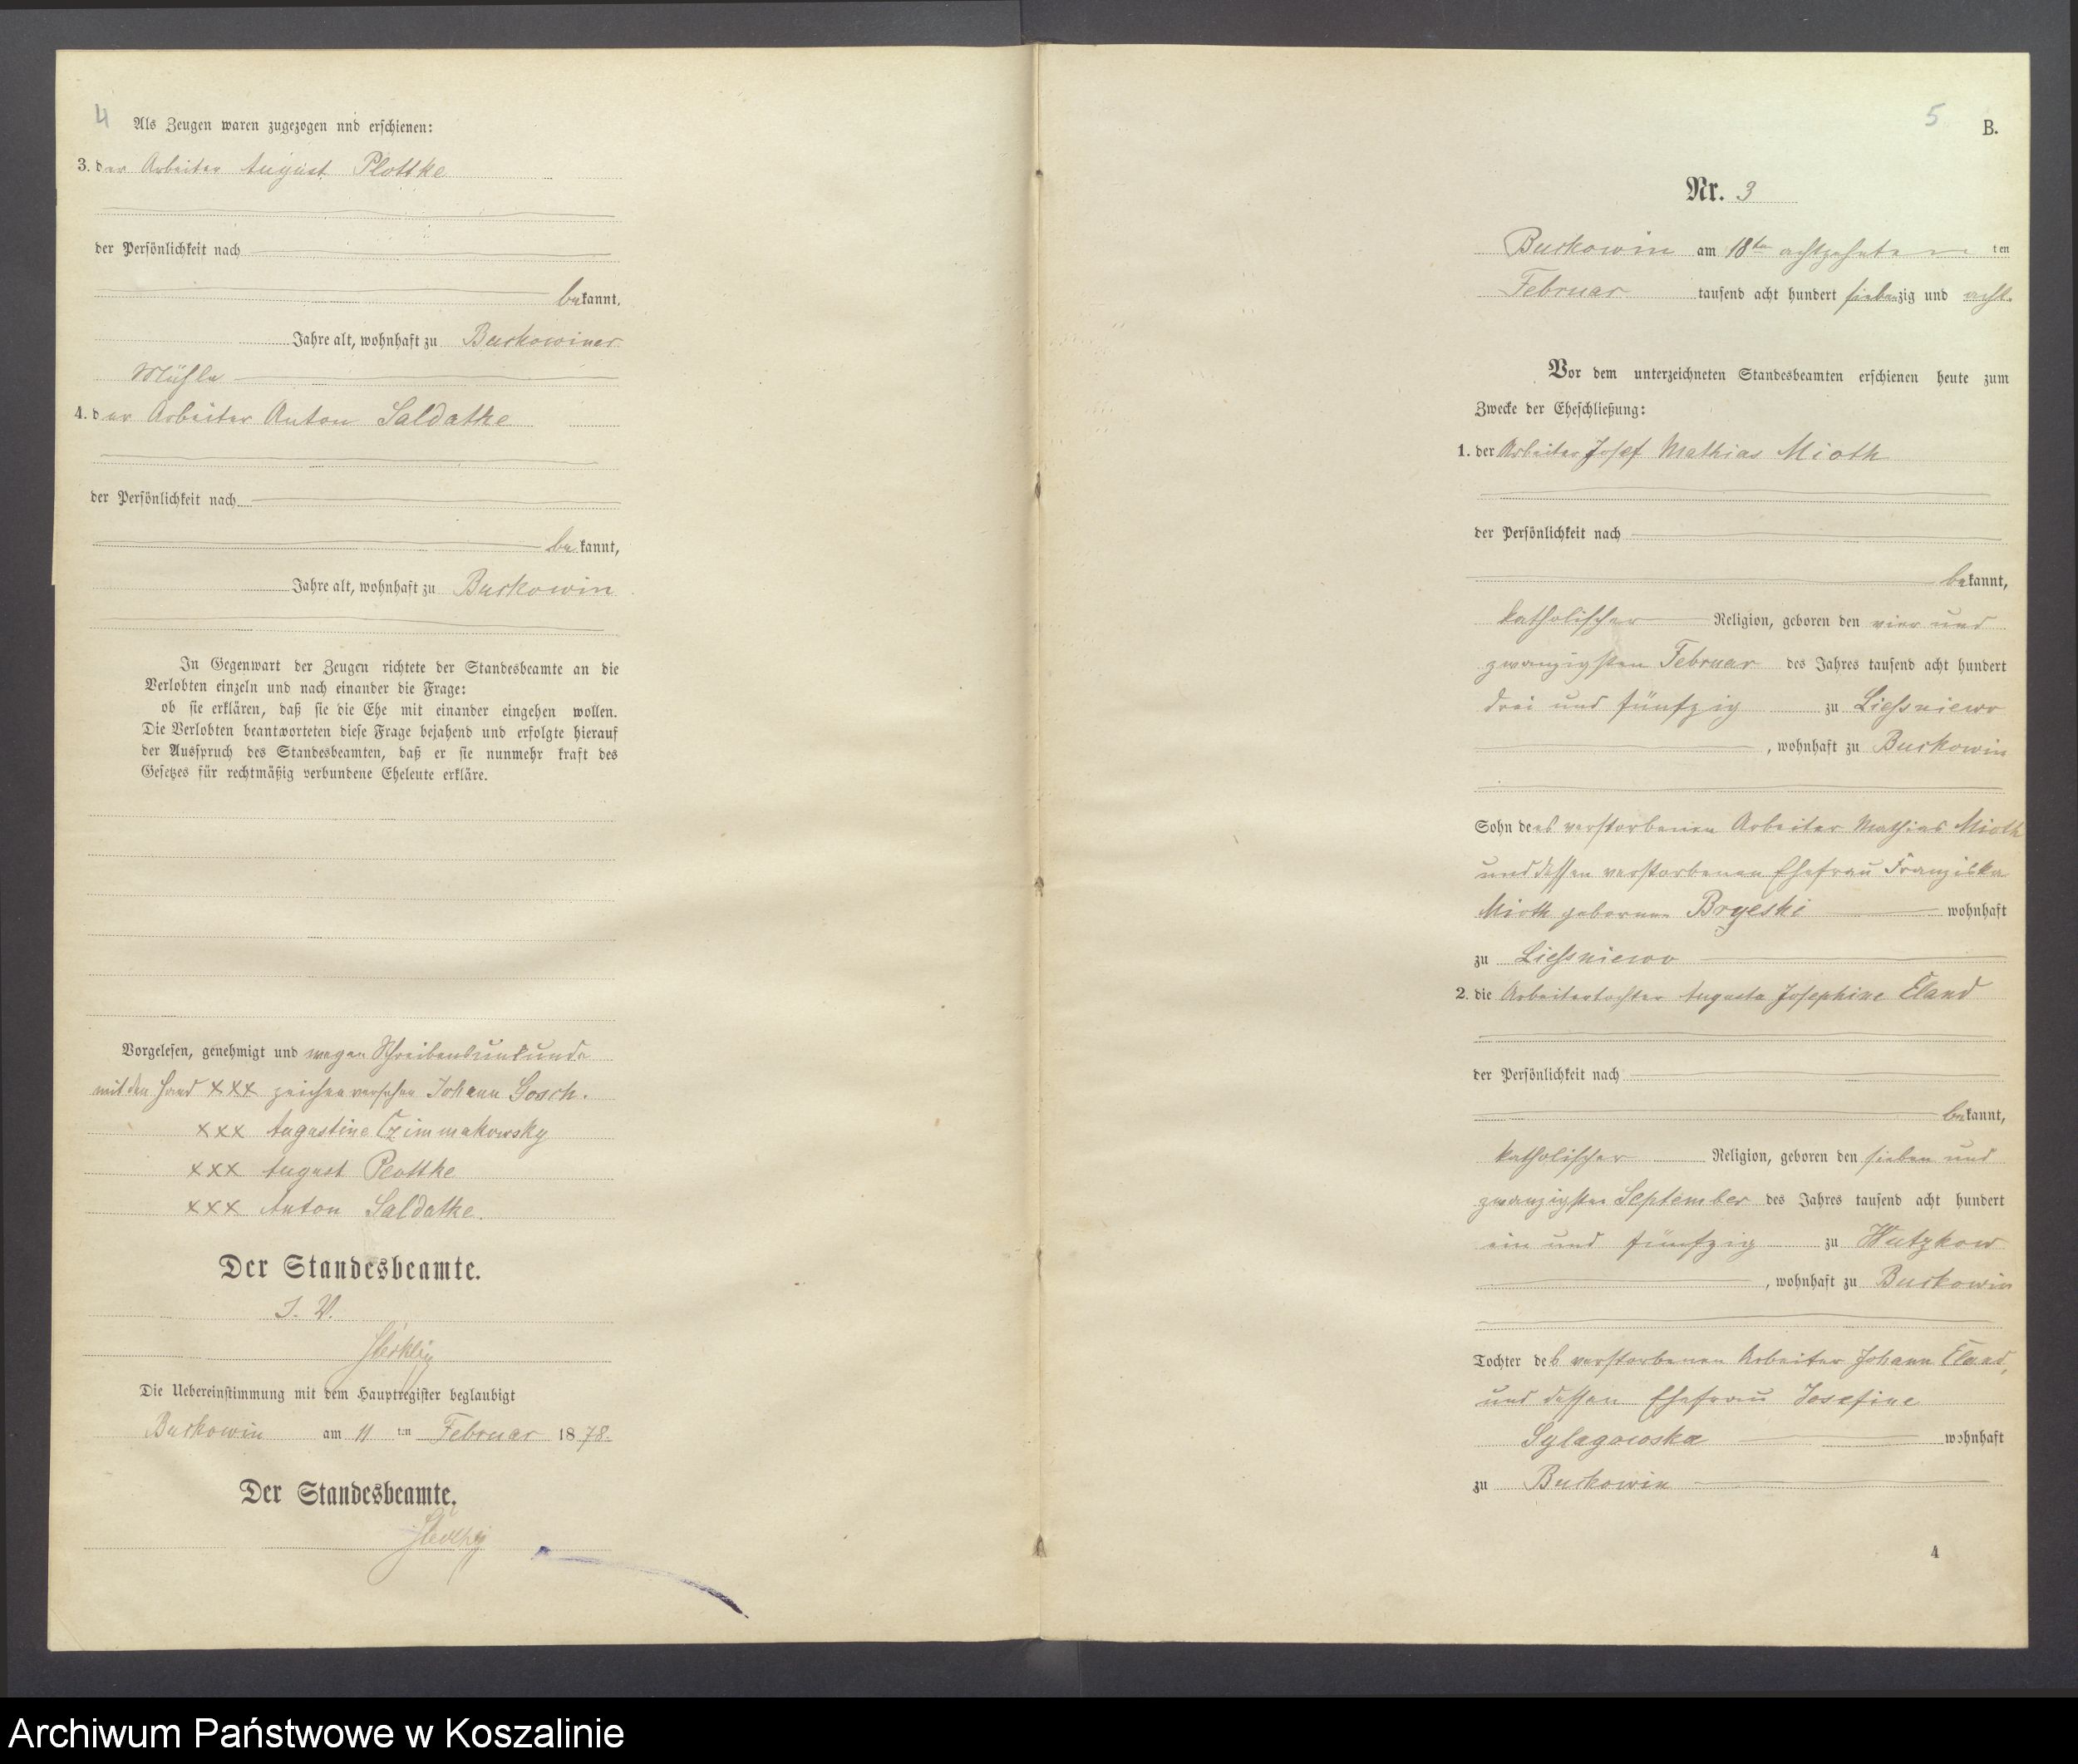 4
Als Zeugen waren zugezogen nnd erschienen:
3. der Arbeiter August Plottke
der Persönlichkeit nach
bekannt,
Jahre alt, wohnhaft zu Buckowiner
Mühle
4. der Arbeiter Anton Saldatke
der Persönlichkeit nach
bekannt,
Jahre alt, wohnhaft zu Buckowin
In Gegenwart der Zeugen richtete der Standesbeamte an die
Verlobten einzeln und nach einander die Frage:
ob sie erklären, daß sie die Ehe mit einander eingehen wollen.
Die Verlobten beantworteten diese Frage bejahend und erfolgte hierauf
der Ausspruch des Standesbeamten, daß er sie nunmehr kraft des
Gesetzes für rechtmäßig verbundene Eheleute erkläre.
Vorgelesen, genehmigt und wegen Schreibensunkunde
mit den Hand XXX zeichen versehen Johann Gosch.
XXX Augustine Czimmakowsky
XXX August Plottke
XXX Anton Saldatke.
Der Standesbeamte.
I. V.
Die Uebereinstimmung mit dem Hauptregister beglaubigt
Buckowin am 11 ten Februar 1878.
Der Standesbeamte.
5
B.
Nr. 3
Buckowin am 18ten achtzehnten ten
Februar tausend acht hundert siebenzig und acht.
Vor dem unterzeichneten Standesbeamten erschienen heute zum
Zwecke der Eheschließung:
1. der Arbeiter Josef Mathias Mioth
der Persönlichkeit nach
bekannt,
katholischer Religion, geboren den vier und
zwanzigsten Februar des Jahres tausend acht hundert
drei und fünfzig zu Liessniewo
, wohnhaft zu Buckowin
Sohn des verstorbenen Arbeiter Mathias Mioth
und dessen verstorbenen Ehefrau Franziska
Mioth geborene Bryeski wohnhaft
zu Liessniewo
2. die Arbeitertochter Augusta Josephine Eland
der Persönlichkeit nach
bekannt,
katholischer Religion, geboren den sieben und
zwanzigsten September des Jahres tausend acht hundert
ein und fünfzig zu Wutzkow
, wohnhaft zu Buckowin
Tochter des verstorbenen Arbeiter Johann Eland,
und dessen Ehefrau Josefine
Sylagowska wohnhaft
zu Buckowin
4
Archiwum Państwowe w Koszalinie